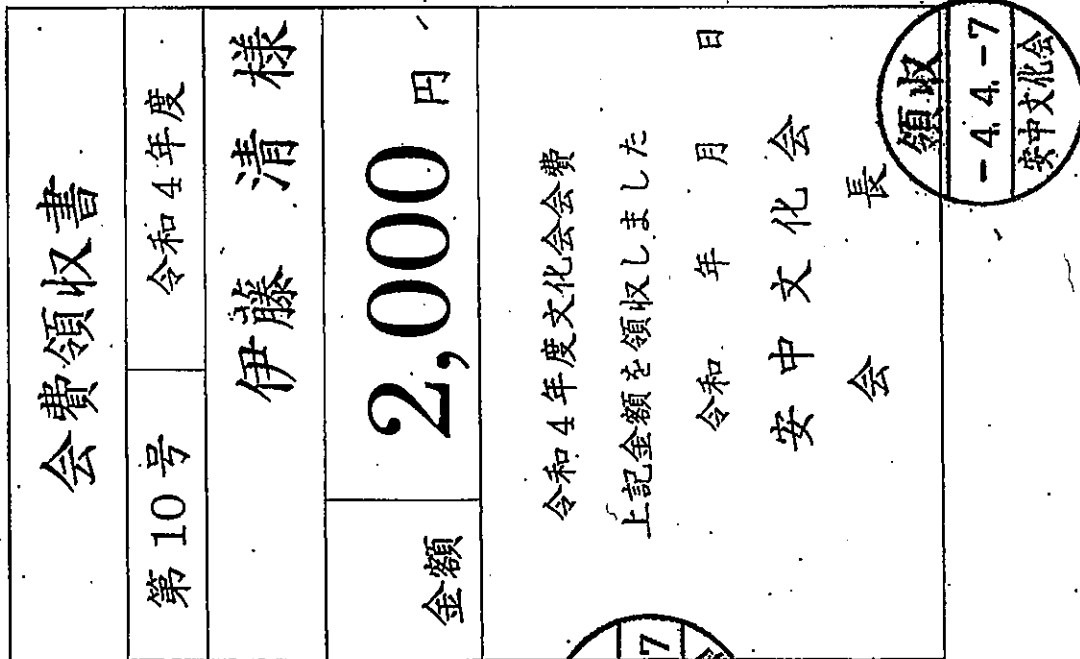 会費領収書
第10号
令和4年度
伊藤 清 様
金額
2,000 円
令和4年度文化会会費
上記金額を領収しました
令和 年 月 日
安中文化会
会 長
領収
-4.4.-7
安中文化会
7